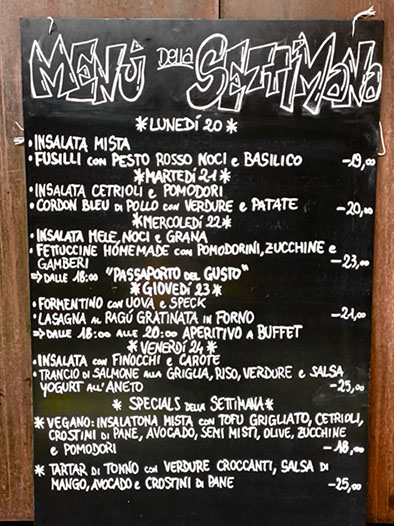 MENÙ DELLA SETTIMANA
* LUNEDÍ 20 *
• INSALATA MISTA
• FUSILLI CON PESTO ROSSO NOCI e BASILICO -19,00
* MARTEDÍ 21 *
• INSALATA CETRIOLI e POMODORI
• CORDON BLEU DI POLLO CON VERDURE e PATATE -20,00
* MERCOLEDÍ 22 *
• INSALATA MELE, NOCI e GRANA
• FETTUCCINE HOMEMADE CON POMODORINI, ZUCCHINE e
GAMBERI -23,00
⇒ DALLE 18:00 "PASSAPORTO DEL GUSTO"
* GIOVEDÍ 23 *
• FORMENTINO CON UOVA e SPECK
• LASAGNA AL RAGÚ GRATINATA IN FORNO -21,00
⇒ DALLE 18:00 ALLE 20:00 APERITIVO A BUFFET
* VENERDÍ 24 *
• INSALATA CON FINOCCHI e CAROTE
• TRANCIO DI SALMONE ALLA GRIGLIA, RISO, VERDURE e SALSA
YOGURT ALL'ANETO -25,00
* SPECIALS DELLA SETTIMANA *
* VEGANO: INSALATONA MISTA CON TOFU GRIGLIATO, CETRIOLI,
CROSTINI DI PANE, AVOCADO, SEMI MISTI, OLIVE, ZUCCHINE
e POMODORI -18,00
* TARTAR DI TONNO CON VERDURE CROCCANTI, SALSA DI
MANGO, AVOCADO e CROSTINI DI PANE -25,00